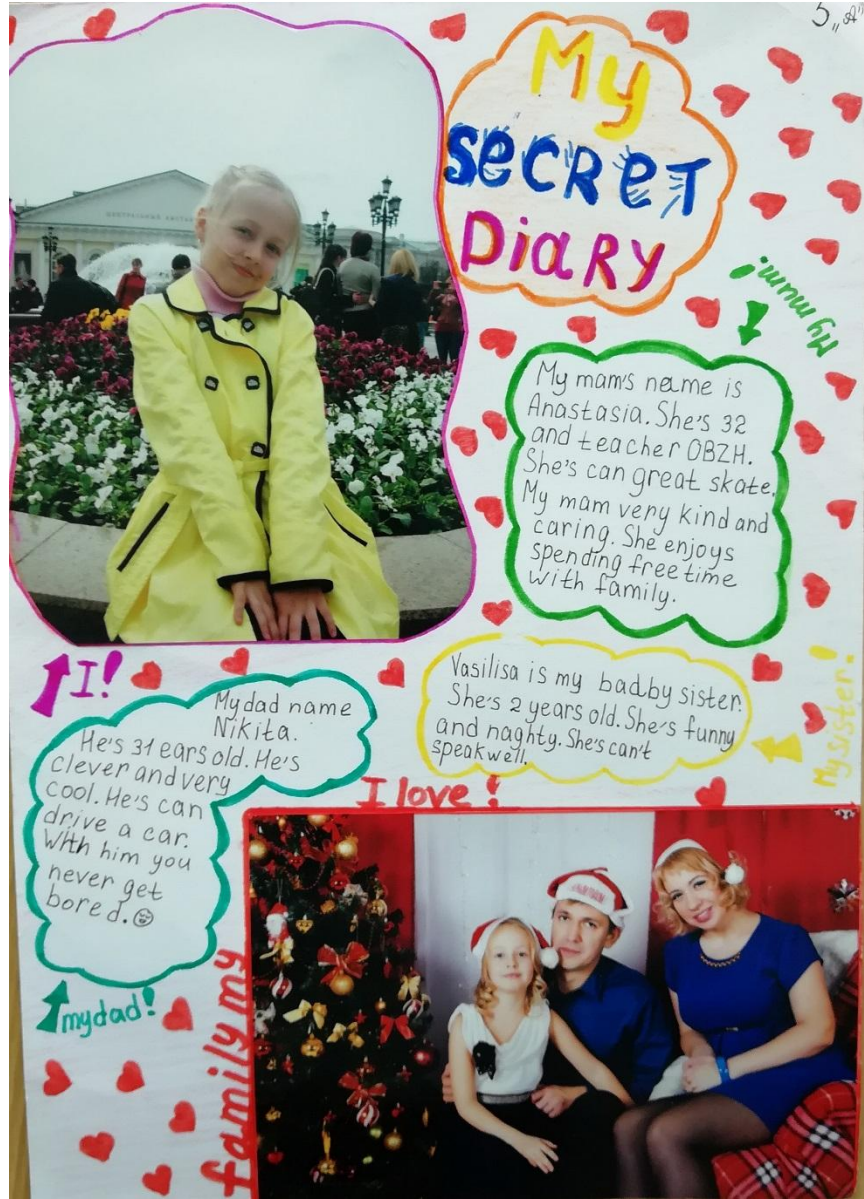 5 „A"
My
SECRET
DiARY
My mum!
My mam's name is
Anastasia. She's 32
and teacher OBZH.
She's can great skate.
My mam very kind and
caring. She enjoys
spending free time
with family.
I!
Vasilisa is my badby sister.
She's 2 years old. She's funny
and naghty. She's can't
speak well.
My sister!
My dad name
Nikita.
He's 31 ears old. He's
clever and very
cool. He's can
drive a car.
With him you
never get
bored.
my dad!
I love !
family my